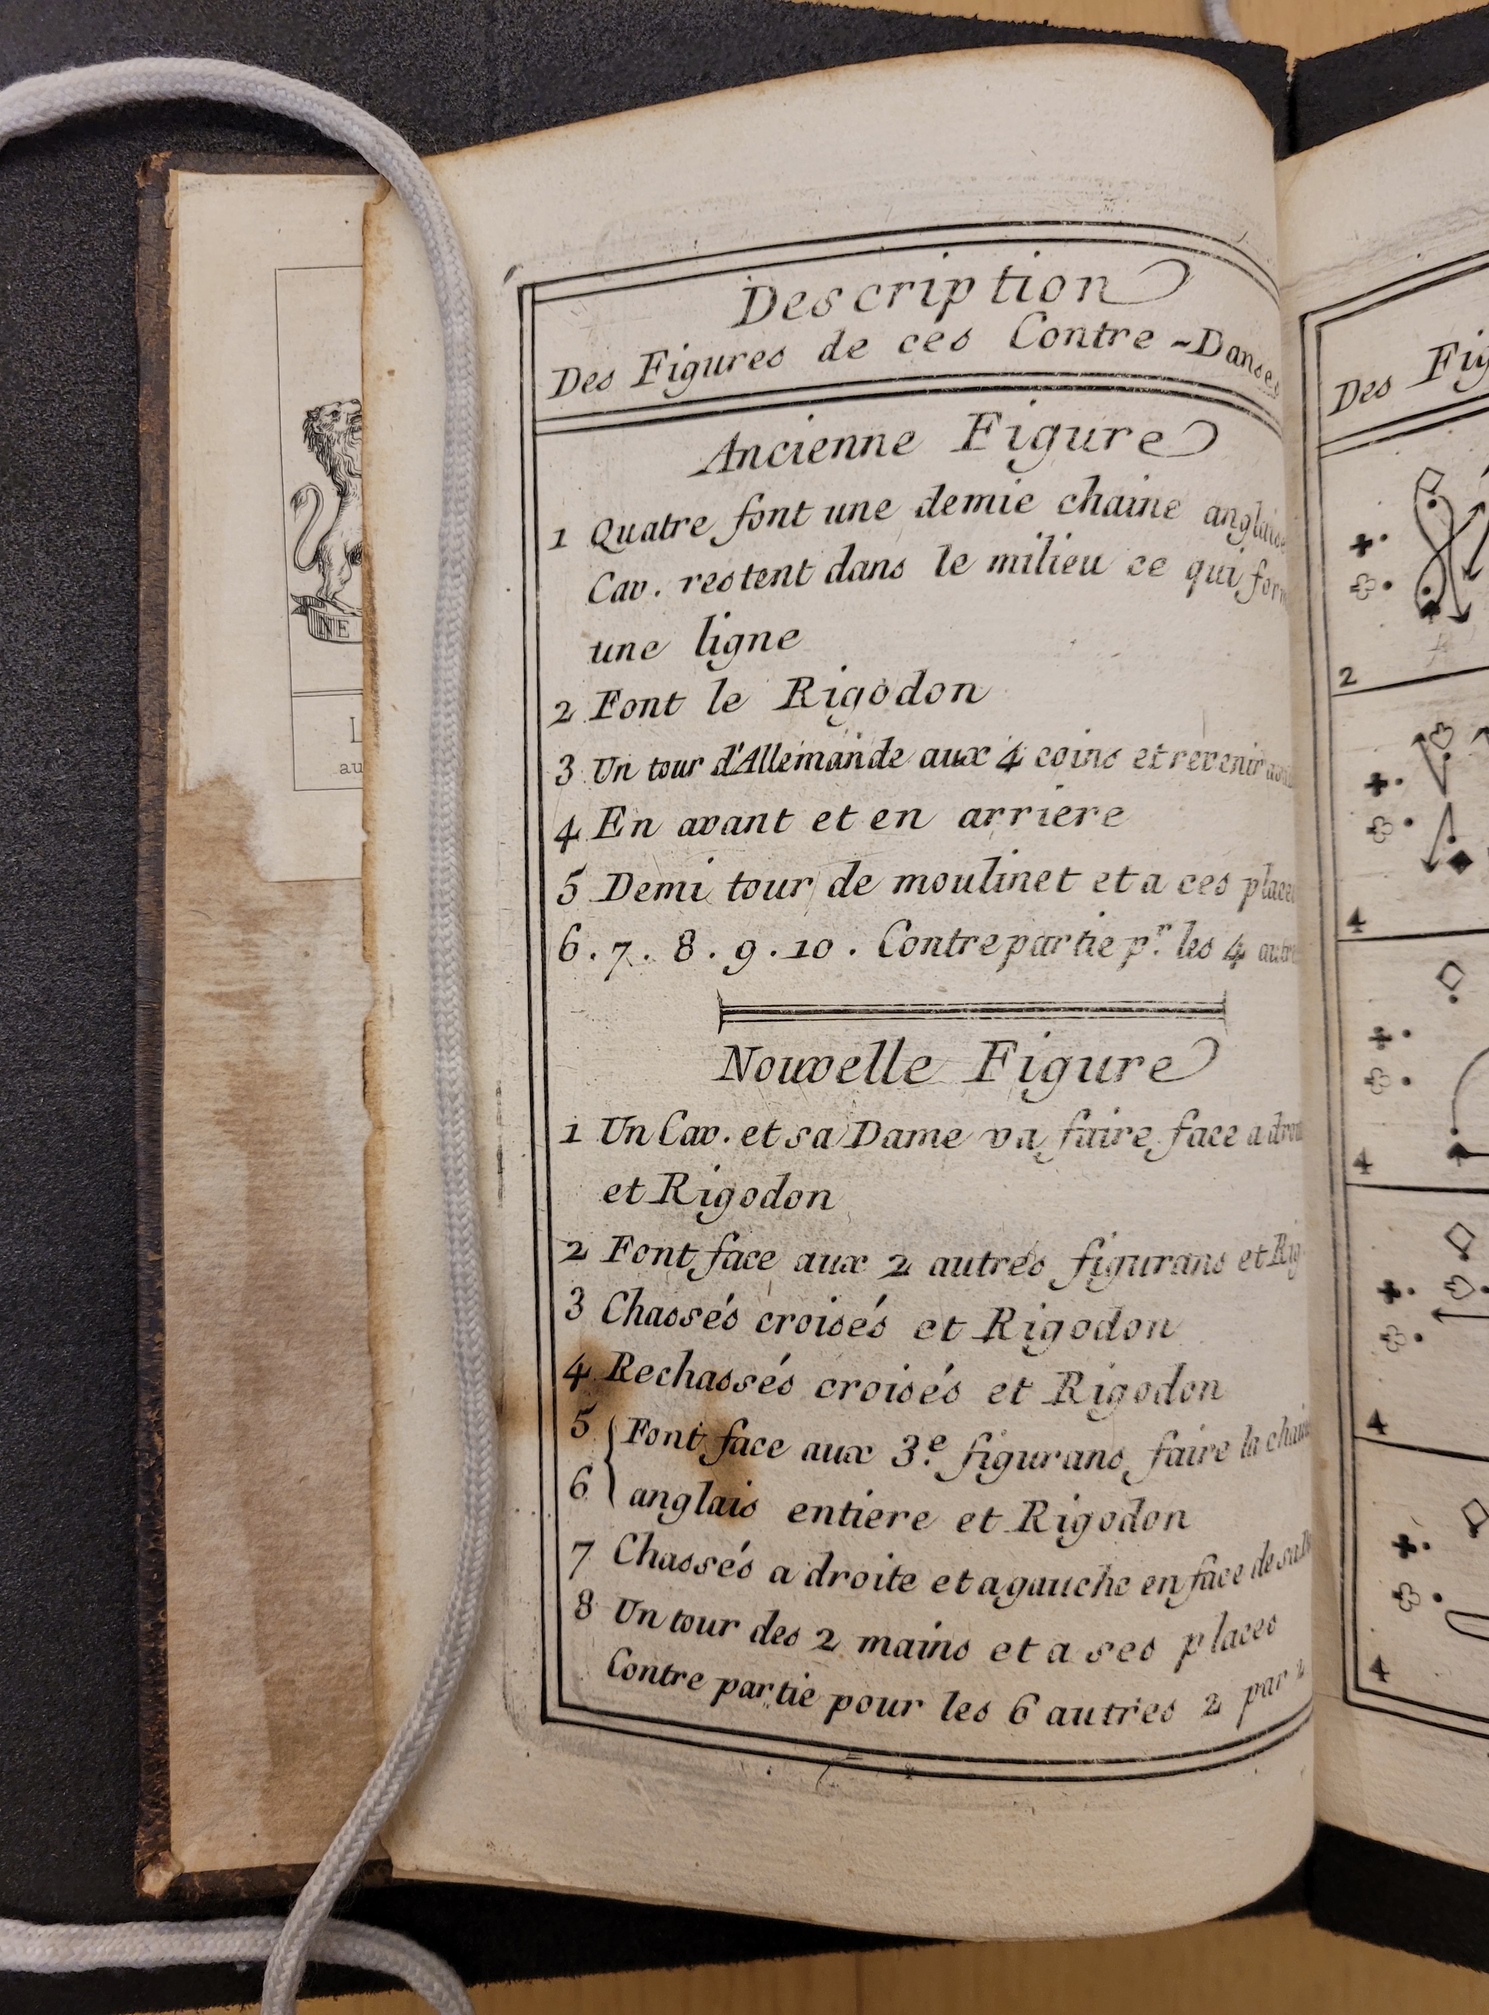 Description
Des Figures de ces Contre-Danses
Ancienne Figure
1 Quatre font une demie chaine anglaise
Cav. restent dans le milieu ce qui
une ligne
2 Font le Rigodon
3 Un tour d'Allemande aux 4 coins et revenir
4 En avant et en arriere
5 Demi tour de moulinet et a ces places
6. 7. 8. 9. 10. Contre partie pr. les 4
Nouvelle Figure
1 Un Cav. et sa Dame va faire face a
et Rigodon
2 Font face aux 2 autres figurans et Rig
3 Chassés croisés et Rigodon
4 Rechassés croisés et Rigodon
5 Font face aux 3.e figurans faire la
6 anglais entiere et Rigodon
7 Chassés a droite et a gauche en face de sa
8 Un tour des 2 mains et a ses places
Contre partie pour les 6 autres 2 par 2
NE
L
au
Des Fig
2
4
4
4
4